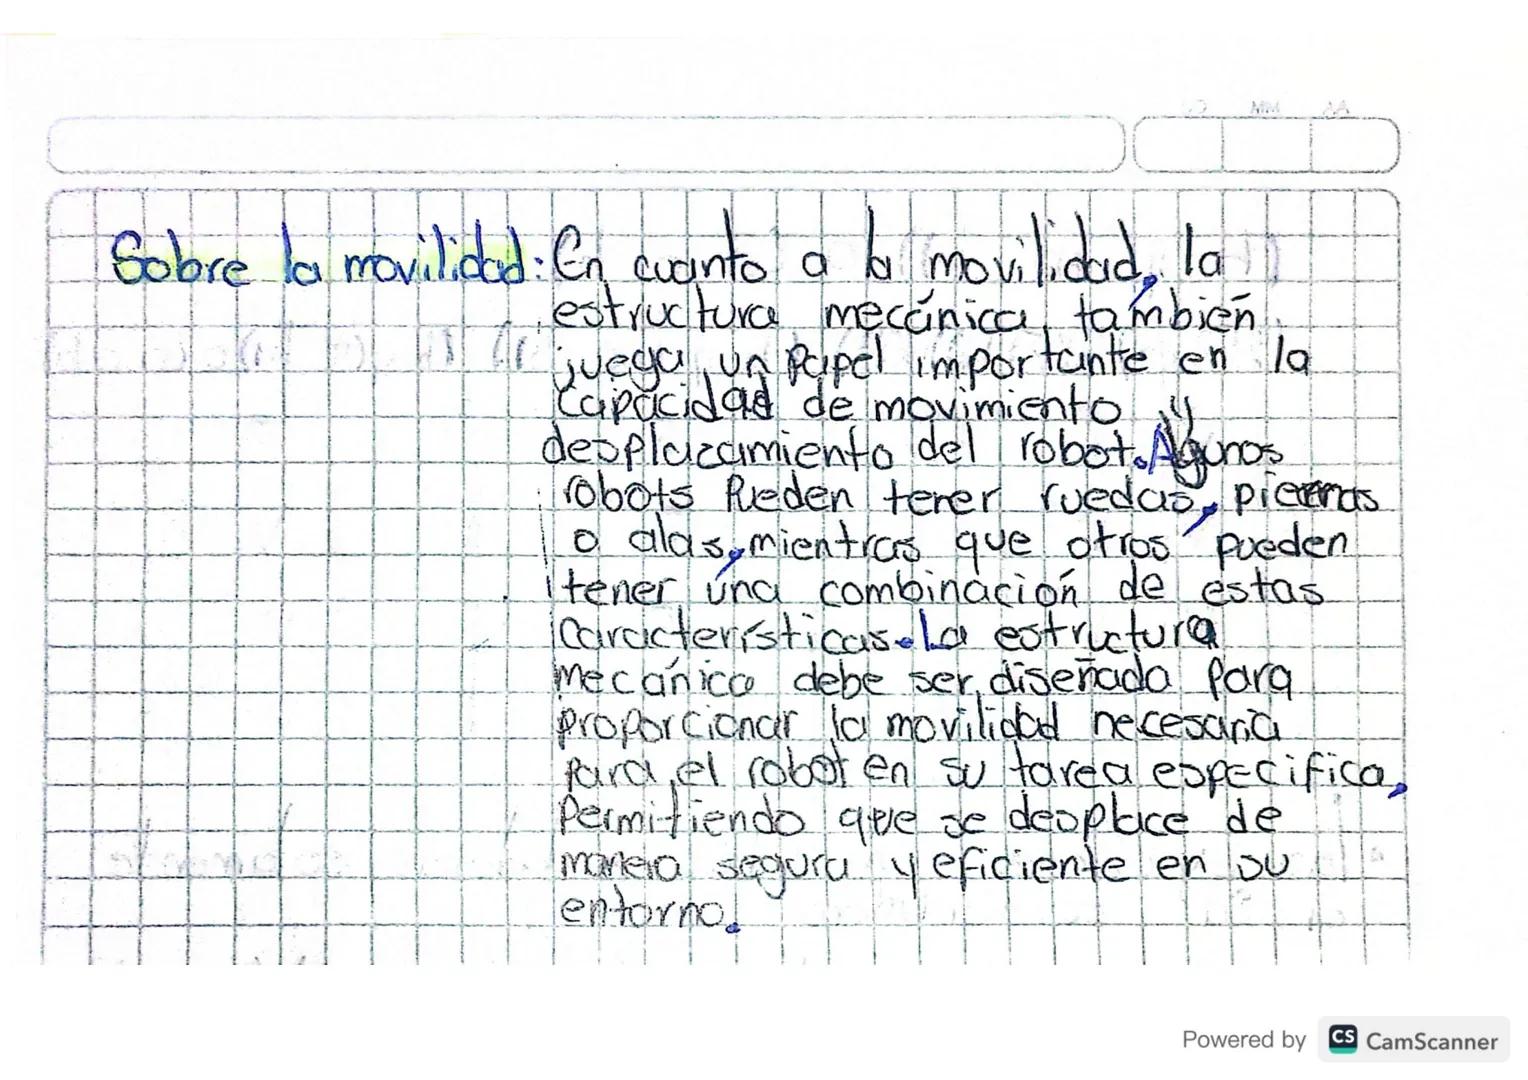 Sobre la movilidad: En cuanto a la movilidad, la
estructura mecánica también
juega un papel importante en la
capacidad de movimiento y
desplazamiento del robot. Algunos
robots Pueden tener ruedas, piernas
o alas, mientras que otros pueden
tener una combinación de estas
características. La estructura
mecánica debe ser diseñada para
proporcionar la movilidad necesaria
para el robot en su tarea especifica,
Permitiendo que se desplace de
manera segura y eficiente en su
entorno.
Powered by CS CamScanner